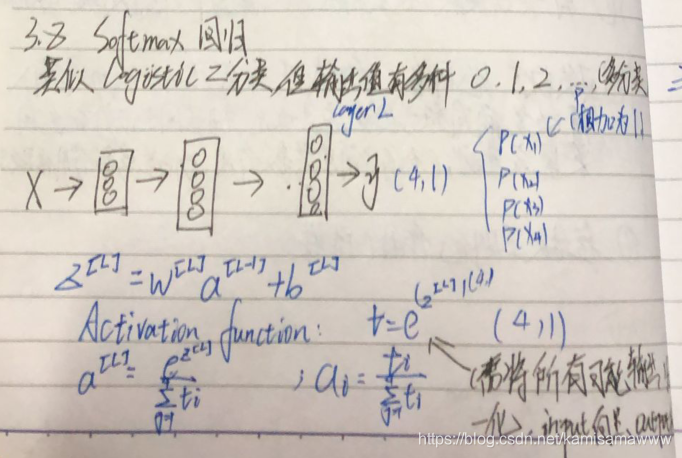 3.8 Softmax 回归
类似 Logistic 2分类,但输出值有多种 0.1,2, ..., (多分类
layer L
P(x₁) (相加为1)
P(x₂)
P(x₃)
P(x₄)
X → → → → ŷ (4,1)
z^[L] = w^[L] a^[L-1] + b^[L]
Activation function: t=e^(z^[L]) (4,1)
a^[L] = e^z^[L] / Σ tᵢ ; aᵢ = tᵢ / Σ tᵢ
(需将所有可能输出
一化), input向量, output
https://blog.csdn.net/kamisamawww